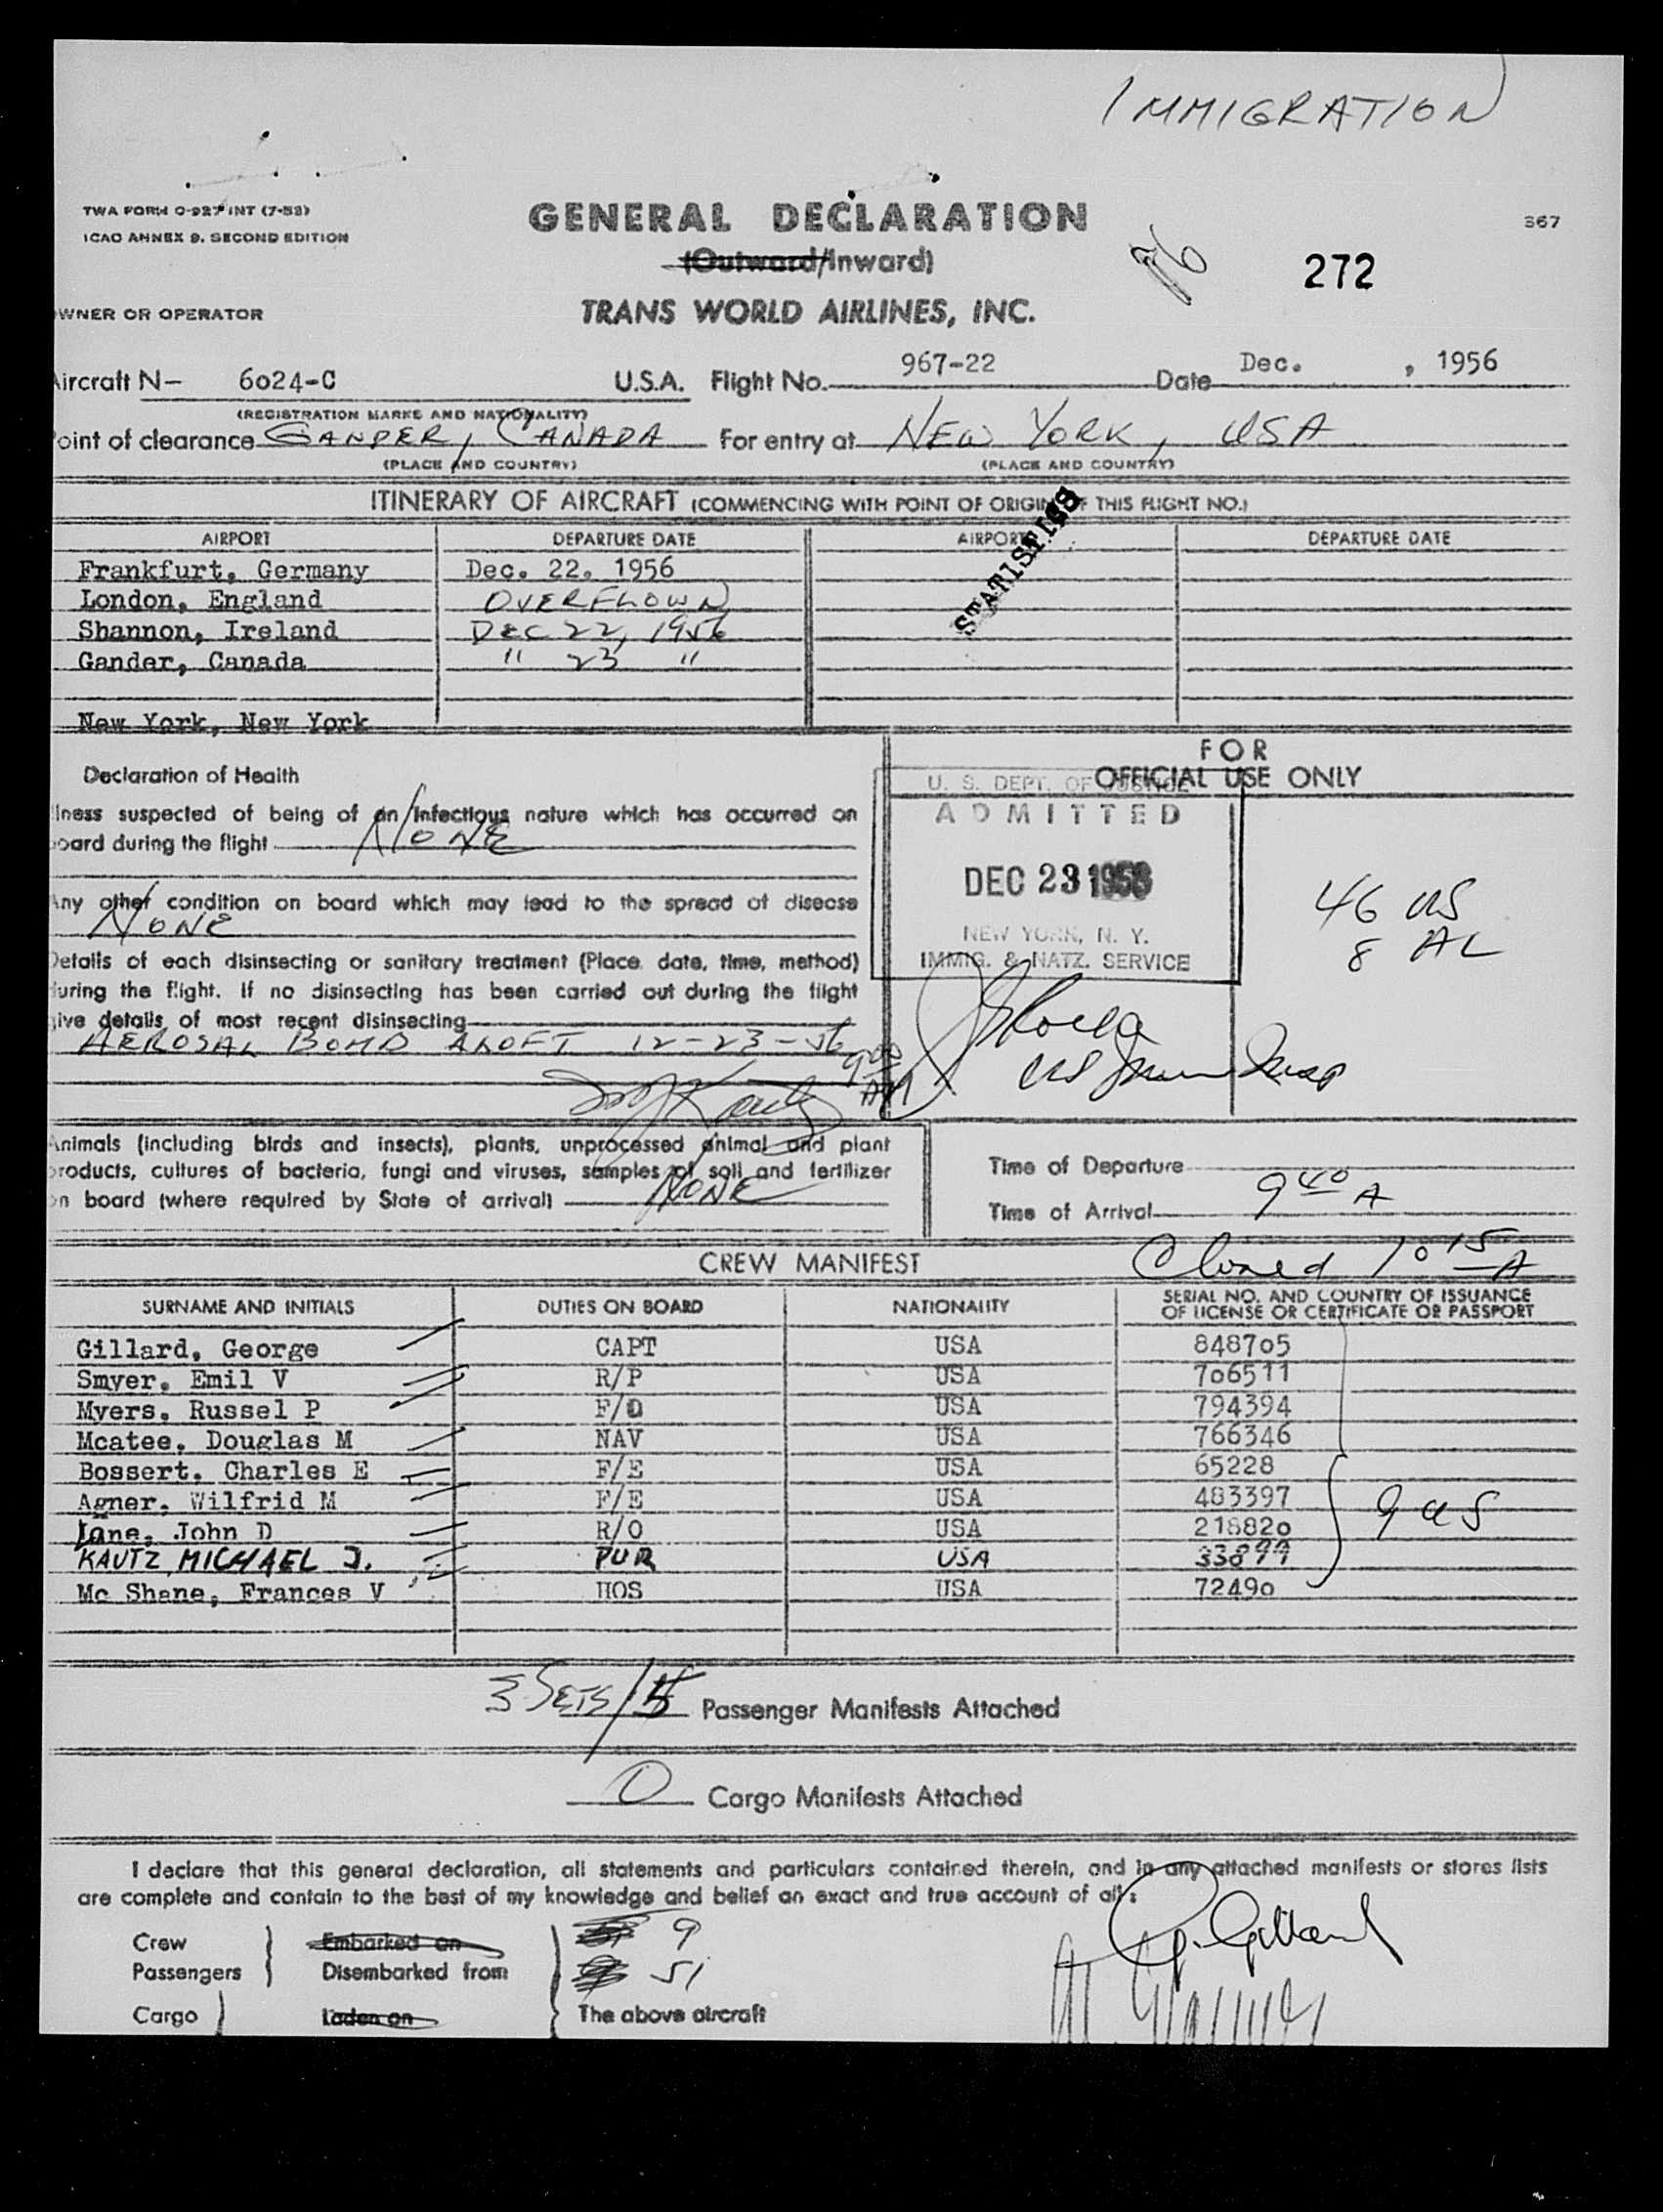 IMMIGRATION
TWA FORM O-927 INT (7-53)
ICAO ANNEX 9, SECOND EDITION
GENERAL DECLARATION
(Outward/Inward)
367
272
WNER OR OPERATOR
TRANS WORLD AIRLINES, INC.
Aircraft N- 6024-C U.S.A. Flight No. 967-22 Date Dec. , 1956
(REGISTRATION MARKS AND NATIONALITY)
oint of clearance GANDER, CANADA For entry at NEW YORK, USA
(PLACE AND COUNTRY) (PLACE AND COUNTRY)
ITINERARY OF AIRCRAFT (COMMENCING WITH POINT OF ORIGIN OF THIS FLIGHT NO.)
STATISTICS
AIRPORT DEPARTURE DATE AIRPORT DEPARTURE DATE
Frankfurt, Germany Dec. 22. 1956
London, England OVERFLOWN
Shannon, Ireland DEC 22, 1956
Gander, Canada " 23 "
New York, New York
Declaration of Health
llness suspected of being of an infectious nature which has occurred on
oard during the flight NONE
Any other condition on board which may lead to the spread of disease
NONE
Details of each disinsecting or sanitary treatment (Place, date, time, method)
during the flight. If no disinsecting has been carried out during the flight
give details of most recent disinsecting
AEROSAL BOMB ALOFT 12-23-56 9 00 AM
FOR
OFFICIAL USE ONLY
U. S. DEPT. OF JUSTICE
ADMITTED
DEC 23 1956
NEW YORK, N. Y.
IMMIG. & NATZ. SERVICE
46 US
8 AL
US Imm Insp
Animals (including birds and insects), plants, unprocessed animal and plant
products, cultures of bacteria, fungi and viruses, samples of soil and fertilizer
on board (where required by State of arrival) NONE
Time of Departure
Time of Arrival 9 40 A
Closed 10 15 A
CREW MANIFEST
SURNAME AND INITIALS DUTIES ON BOARD NATIONALITY SERIAL NO. AND COUNTRY OF ISSUANCE
OF LICENSE OR CERTIFICATE OR PASSPORT
Gillard, George CAPT USA 848705
Smyer, Emil V R/P USA 706511
Myers, Russel P F/O USA 794394
Mcatee, Douglas M NAV USA 766346
Bossert, Charles E F/E USA 65228
Agner, Wilfrid M F/E USA 483397
Lane, John D R/O USA 218820
KAUTZ, MICHAEL J. PUR USA 33899
Mc Shane, Frances V HOS USA 72490
9 US
3 SETS/5 Passenger Manifests Attached
0 Cargo Manifests Attached
I declare that this general declaration, all statements and particulars contained therein, and in any attached manifests or stores lists
are complete and contain to the best of my knowledge and belief an exact and true account of all:
Crew Embarked on 9
Passengers Disembarked from 51
Cargo Laden on The above aircraft
G. Gillard